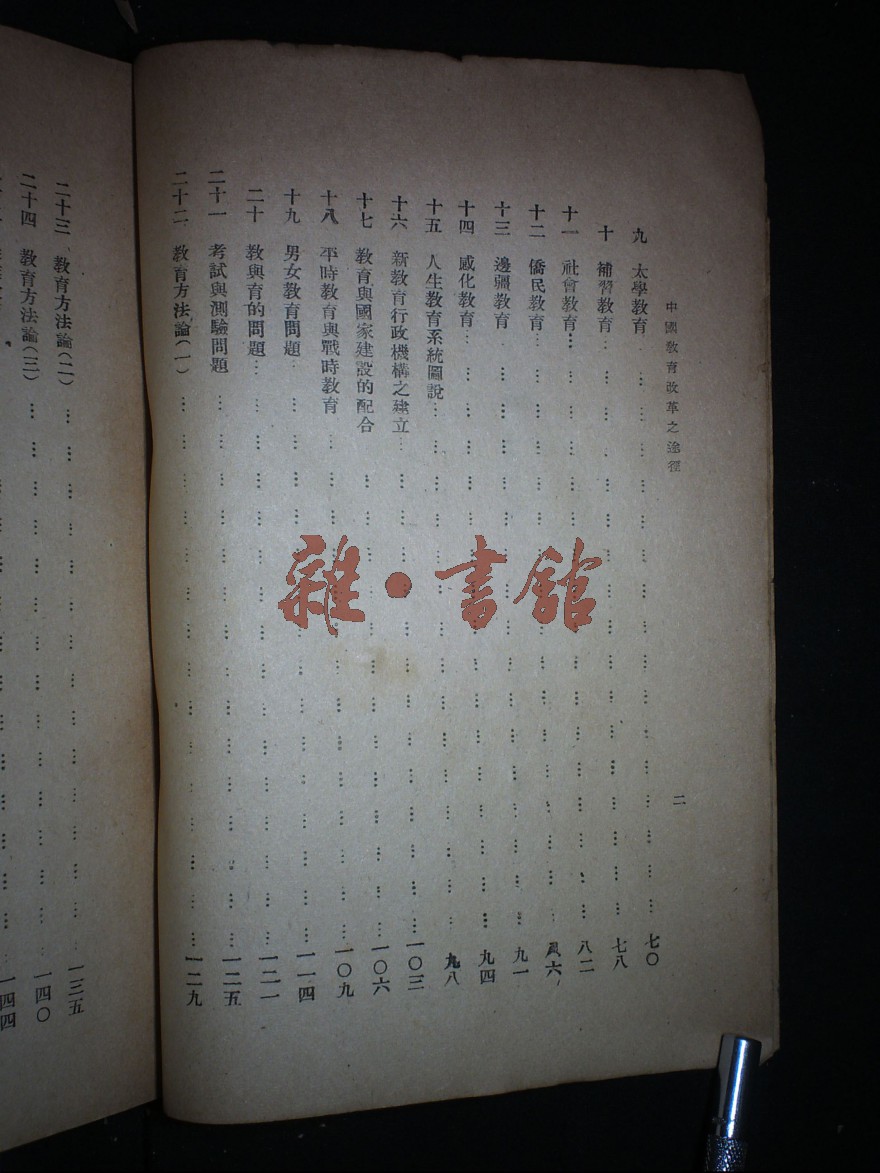 中國教育改革之途徑
二
九 太學教育 … … … … … … … … … … … … 七〇
十 補習教育 … … … … … … … … … … … … 七八
十一 社會教育 … … … … … … … … … … … … 八二
十二 僑民教育 … … … … … … … … … … … … 八六
十三 邊疆教育 … … … … … … … … … … … … 九一
十四 感化教育 … … … … … … … … … … … … 九四
十五 人生教育系統圖說 … … … … … … … … … … 九八
十六 新教育行政機構之建立 … … … … … … … … … 一〇三
十七 教育與國家建設的配合 … … … … … … … … … 一〇六
十八 平時教育與戰時教育 … … … … … … … … … … 一〇九
十九 男女教育問題 … … … … … … … … … … … 一一四
二十 教與育的問題 … … … … … … … … … … … 一二一
二十一 考試與測驗問題 … … … … … … … … … … 一二五
二十二 教育方法論(一) … … … … … … … … … … 一二九
二十三 教育方法論(二) … … … … … … … … … … 一三五
二十四 教育方法論(三) … … … … … … … … … … 一四〇
一四四
雜·書館